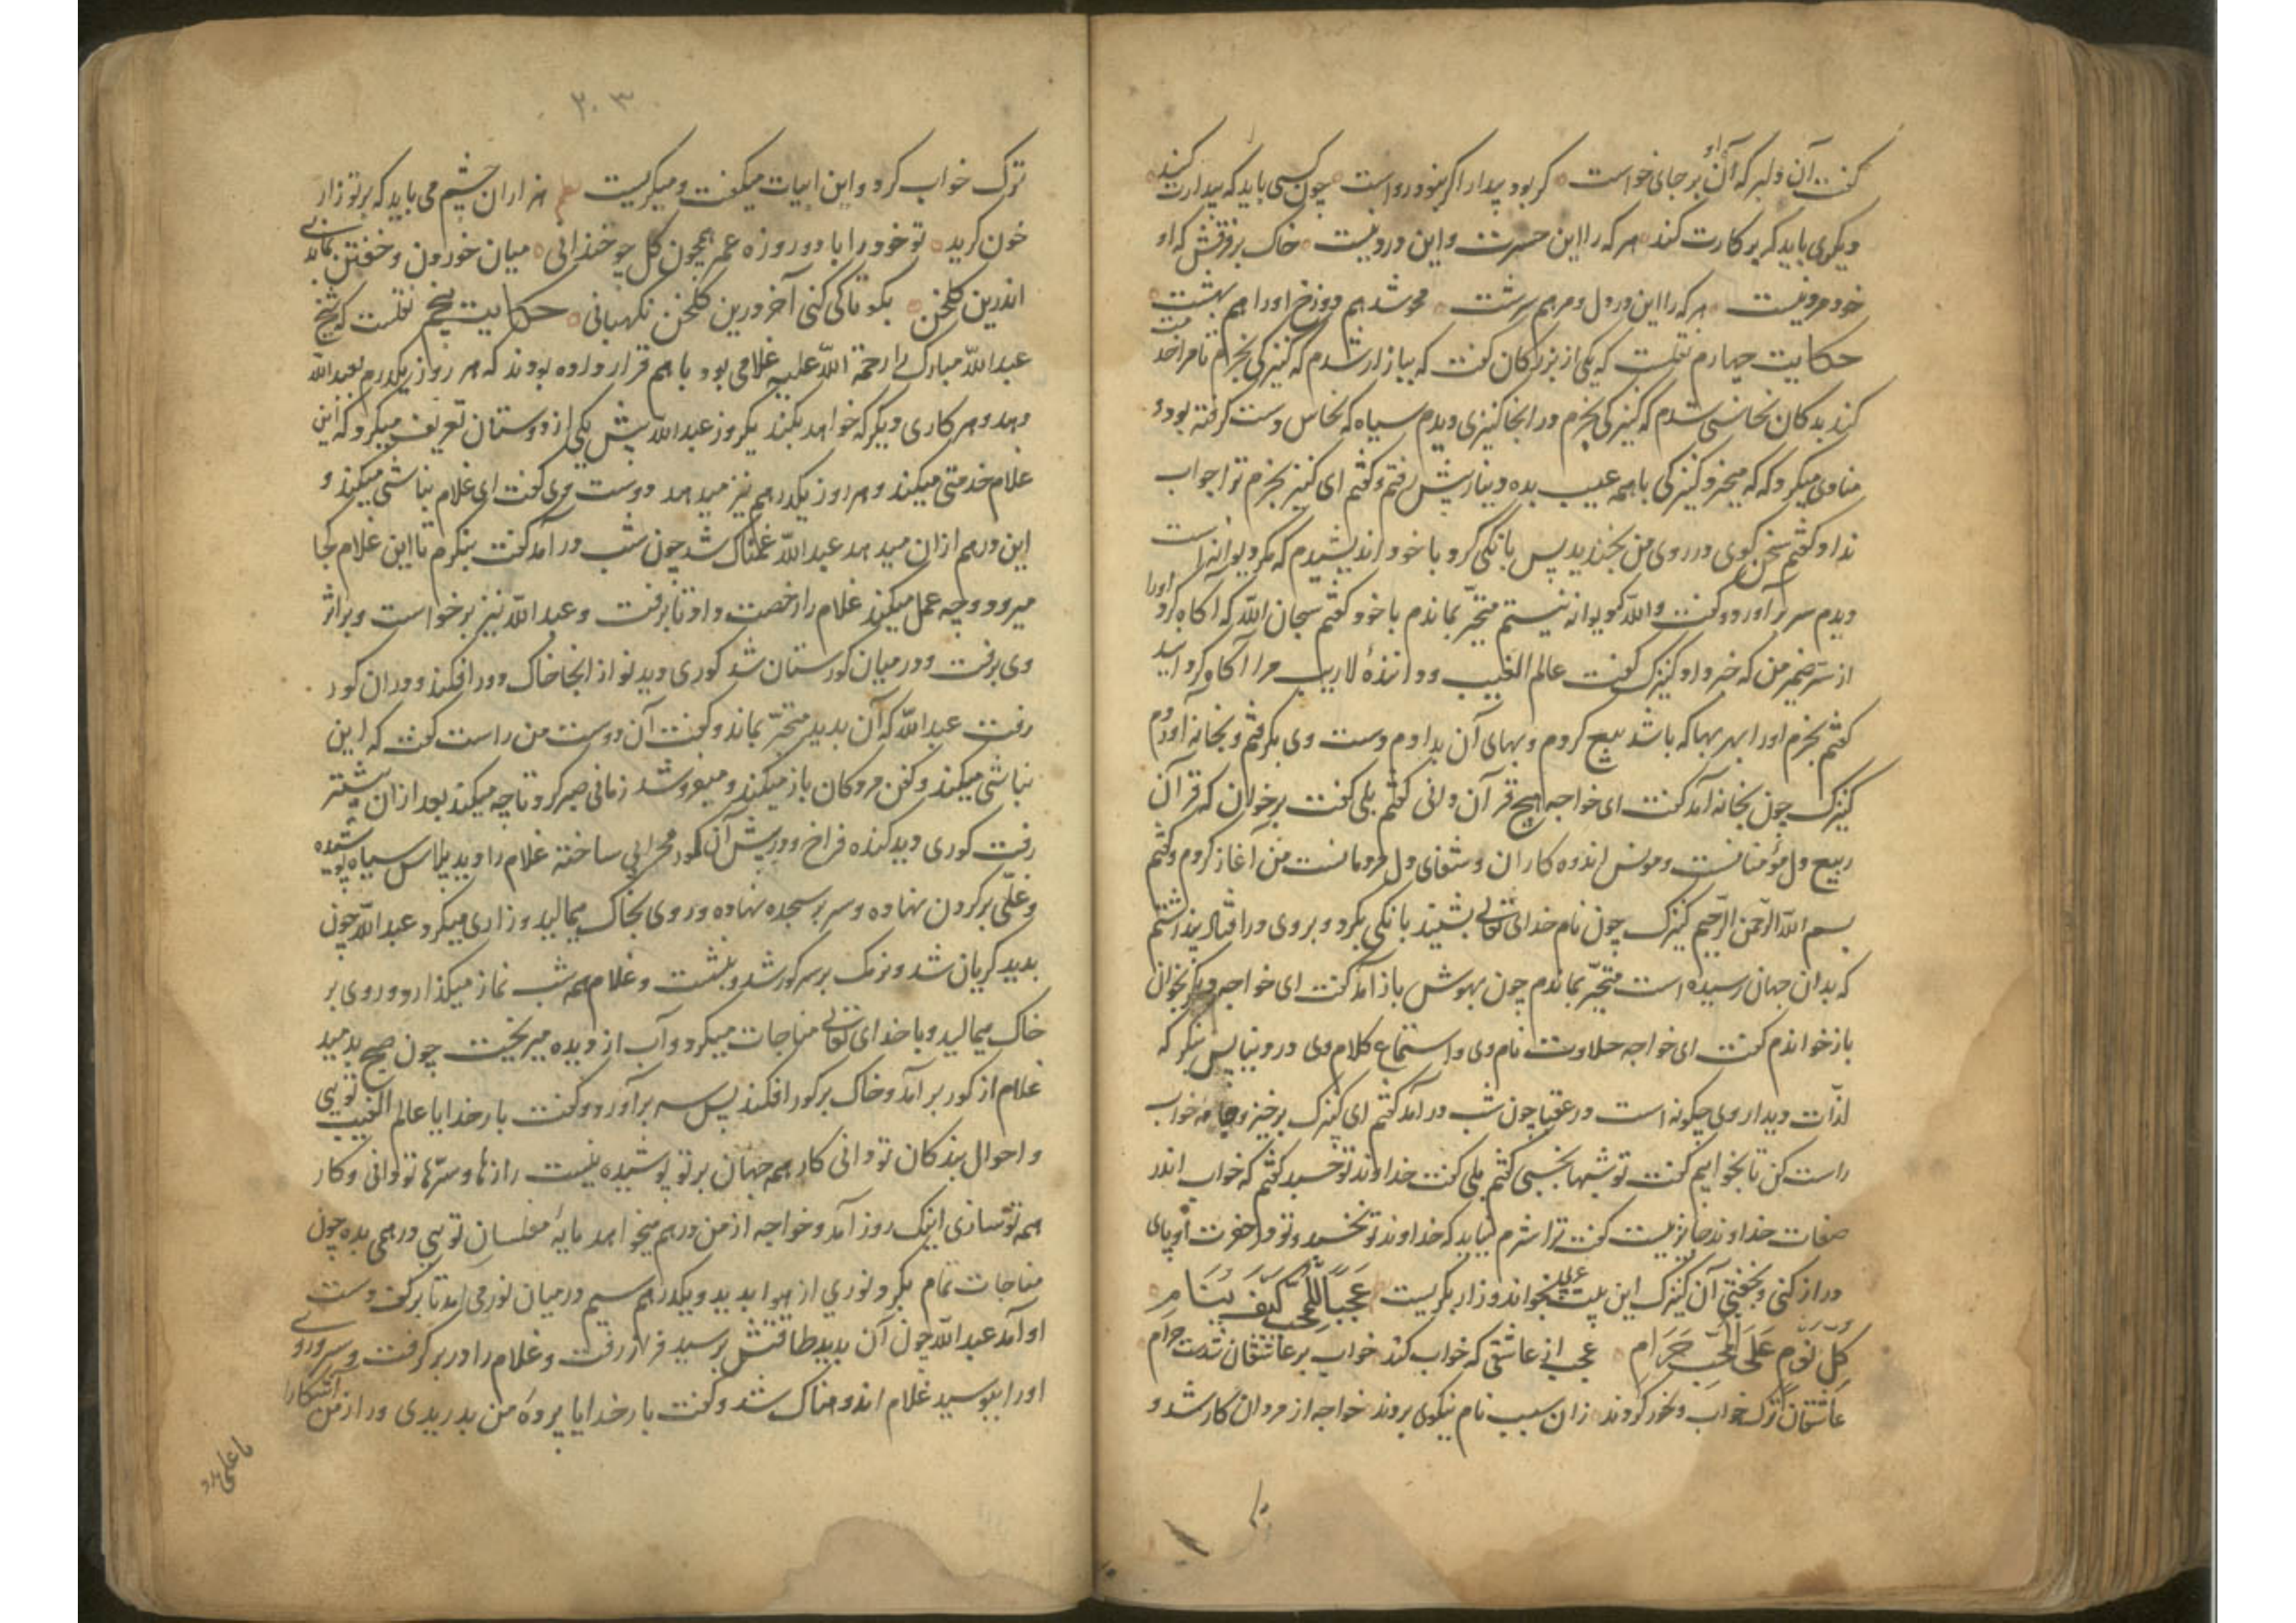 گفت آن دلبر که آن او بر جای خواست گر بود بیدار اگر نبود رواست چون کسی باید که بیدارت کند
دیگری باید که بر کارت کند هر که را این حسرت و این درد نیست خاک بر فرقش که او
خود مرد نیست هر که را این درد دل مرهم سرشت محو شد هم دوزخ او را هم بهشت
حکایت چهارم نقلست که یکی از بزرگان گفت که ببازار شدم که کنیزکی بخرم تا مرا خدمت
کند بدکان نخاسی شدم که کنیزکی بخرم در آنجا کنیزی دیدم سیاه که نخاس دست گرفته بود و
منادی میکرد که که میخرد کنیزکی با همه عیب بده دینار پیش رفتم و گفتم ای کنیز بخرم ترا جواب
نداد گفتم سخن گوی در روی من بخندید پس بانکی کرد با خود اندیشیدم که مگر دیوانه است
دیدم سر بر آورد و گفت والله کدیوانه نیستم متحیر بماندم با خود گفتم سبحان الله که آگاه کرد او را
از سر ضمیر من که خبر داد کنیزک گفت عالم الغیب و دانندهٔ لاریب مرا آگاه گردانید
گفتم بخرم او را بهر بها که باشد بیع کردم و بهای آن بدادم و دست وی بگرفتم و بخانه آوردم
کنیزک چون بخانه آمد گفت ای خواجه هیچ قرآن دانی گفتم بلی گفت برخوان که قرآن
ربیع دل مؤمنانست و مونس اندوه کاران و شفای دل مردمانست من آغاز کردم و گفتم
بسم الله الرحمن الرحیم کنیزک چون نام خدای تعالی بشنید بانکی بکرد و بروی در افتاد پنداشتم
که بدان جهان رسیده است متحیر بماندم چون بهوش باز آمد گفت ای خواجه دیگر بخوان
باز خواندم گفت ای خواجه حلاوت نام وی و استماع کلام وی در دنیا پس بنگر که
لذات دیدار وی چگونه است در عقبا چون شب در آمد گفتم ای کنیزک برخیز و جامه خواب
راست کن تا بخوابیم گفت تو شبها بخسبی گفتم بلی گفت خداوند تو خسبد گفتم که خواب اندر
صفات خداوند جایز نیست گفت ترا شرم نیاید که خداوند تو نخسبد و تو در حضرت او پای
دراز کنی و بخفتی آن کنیزک این بیت عربی بخواند و زار بگریست عَجَبًا لِلْمُحِبِّ کَیْفَ یَنَام
کُلُّ نَوْمٍ عَلَی الْمُحِبِّ حَرَام عجب از عاشقی که خواب کند خواب بر عاشقان شدست حرام
عاشقان ترک خواب و خور کردند زان سبب نام نیکوی بردند خواجه از مردان کار شد و
۲۰۳
ترک خواب کرد و این ابیات میگفت و میگریست نظم هزاران چشم می باید که بر تو زار
خون گرید تو خود را با دو روزه عمر همچون گل چو خندانی میان خوردن و خفتن بمانی
اندرین گلخن بگو تا کی کنی آخر درین گلخن نگهبانی حکایت پنجم نقلست که شیخ
عبدالله مبارک را رحمة الله علیه غلامی بود با هم قرار داده بودند که هر روز یکدرم بعبدالله
دهد و هر کاری دیگر که خواهد بکند یکروز عبدالله پیش یکی از دوستان تعریف میکرد که این
غلام خدمتی میکند و هر روز یکدرهم نیز میدهد دوست وی گفت ای غلام نباشی میکند و
این درهم ازان میدهد عبدالله غمناک شد چون شب در آمد گفت بنگرم تا این غلام کجا
میرود و چه عمل میکند غلام را رخصت داد تا برفت و عبدالله نیز برخواست و بر اثر
وی برفت و در میان گورستان شد گوری دید نو از انجا خاک دور افکند و در ان گور
رفت عبدالله که آن بدید متحیر بماند و گفت آن دوست من راست گفت که این
نباشی میکند و کفن مردگان باز میکند و میفروشد زمانی صبر کرد تا چه میکند بعد از ان پیشتر
رفت گوری دید کنده فراخ و در پیش آن گور محرابی ساخته غلام را دید پلاس سیاه پوشیده
و غلی بر گردن نهاده و سر بسجده نهاده و روی بخاک میمالید و زاری میکرد عبدالله چون
بدید گریان شد و نرمک بر سر گور شد و بنشست و غلام همه شب نماز میگذارد و روی بر
خاک میمالید و با خدای تعالی مناجات میکرد و آب از دیده میریخت چون صبح بدمید
غلام از گور بر آمد و خاک بر گور افکند پس سر برآورد و گفت بار خدایا عالم الغیب تویی
و احوال بندگان تو دانی کار همه جهان بر تو پوشیده نیست رازها و سرها تو دانی و کار
همه تو سازی اینک روز آمد و خواجه از من درهم میخواهد مایهٔ مفلسان تویی درهمی بده چون
مناجات تمام بکرد نوری از هوا بدید و یکدرهم سیم در میان نور می آمد تا بر کف دست
او آمد عبدالله چون آن بدید طاقتش برسید فراز رفت و غلام را در بر گرفت و سر و روی
او را ببوسید غلام اندوهناک شد و گفت بار خدایا پردهٔ من بدریدی و راز من آشکارا
یا علی مدد